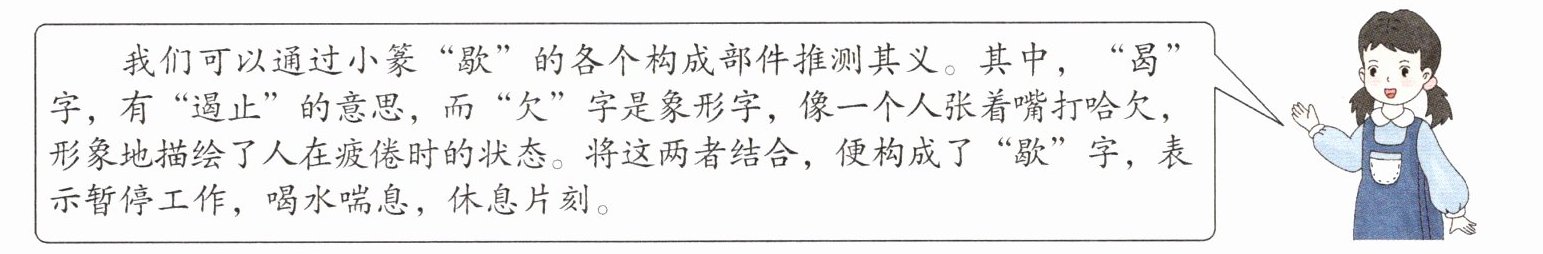 我们可以通过小篆“歇”的各个构成部件推测其义。其中，“曷”
字，有“遏止”的意思，而“欠”字是象形字，像一个人张着嘴打哈欠，
形象地描绘了人在疲倦时的状态。将这两者结合，便构成了“歇”字，表
示暂停工作，喝水喘息，休息片刻。